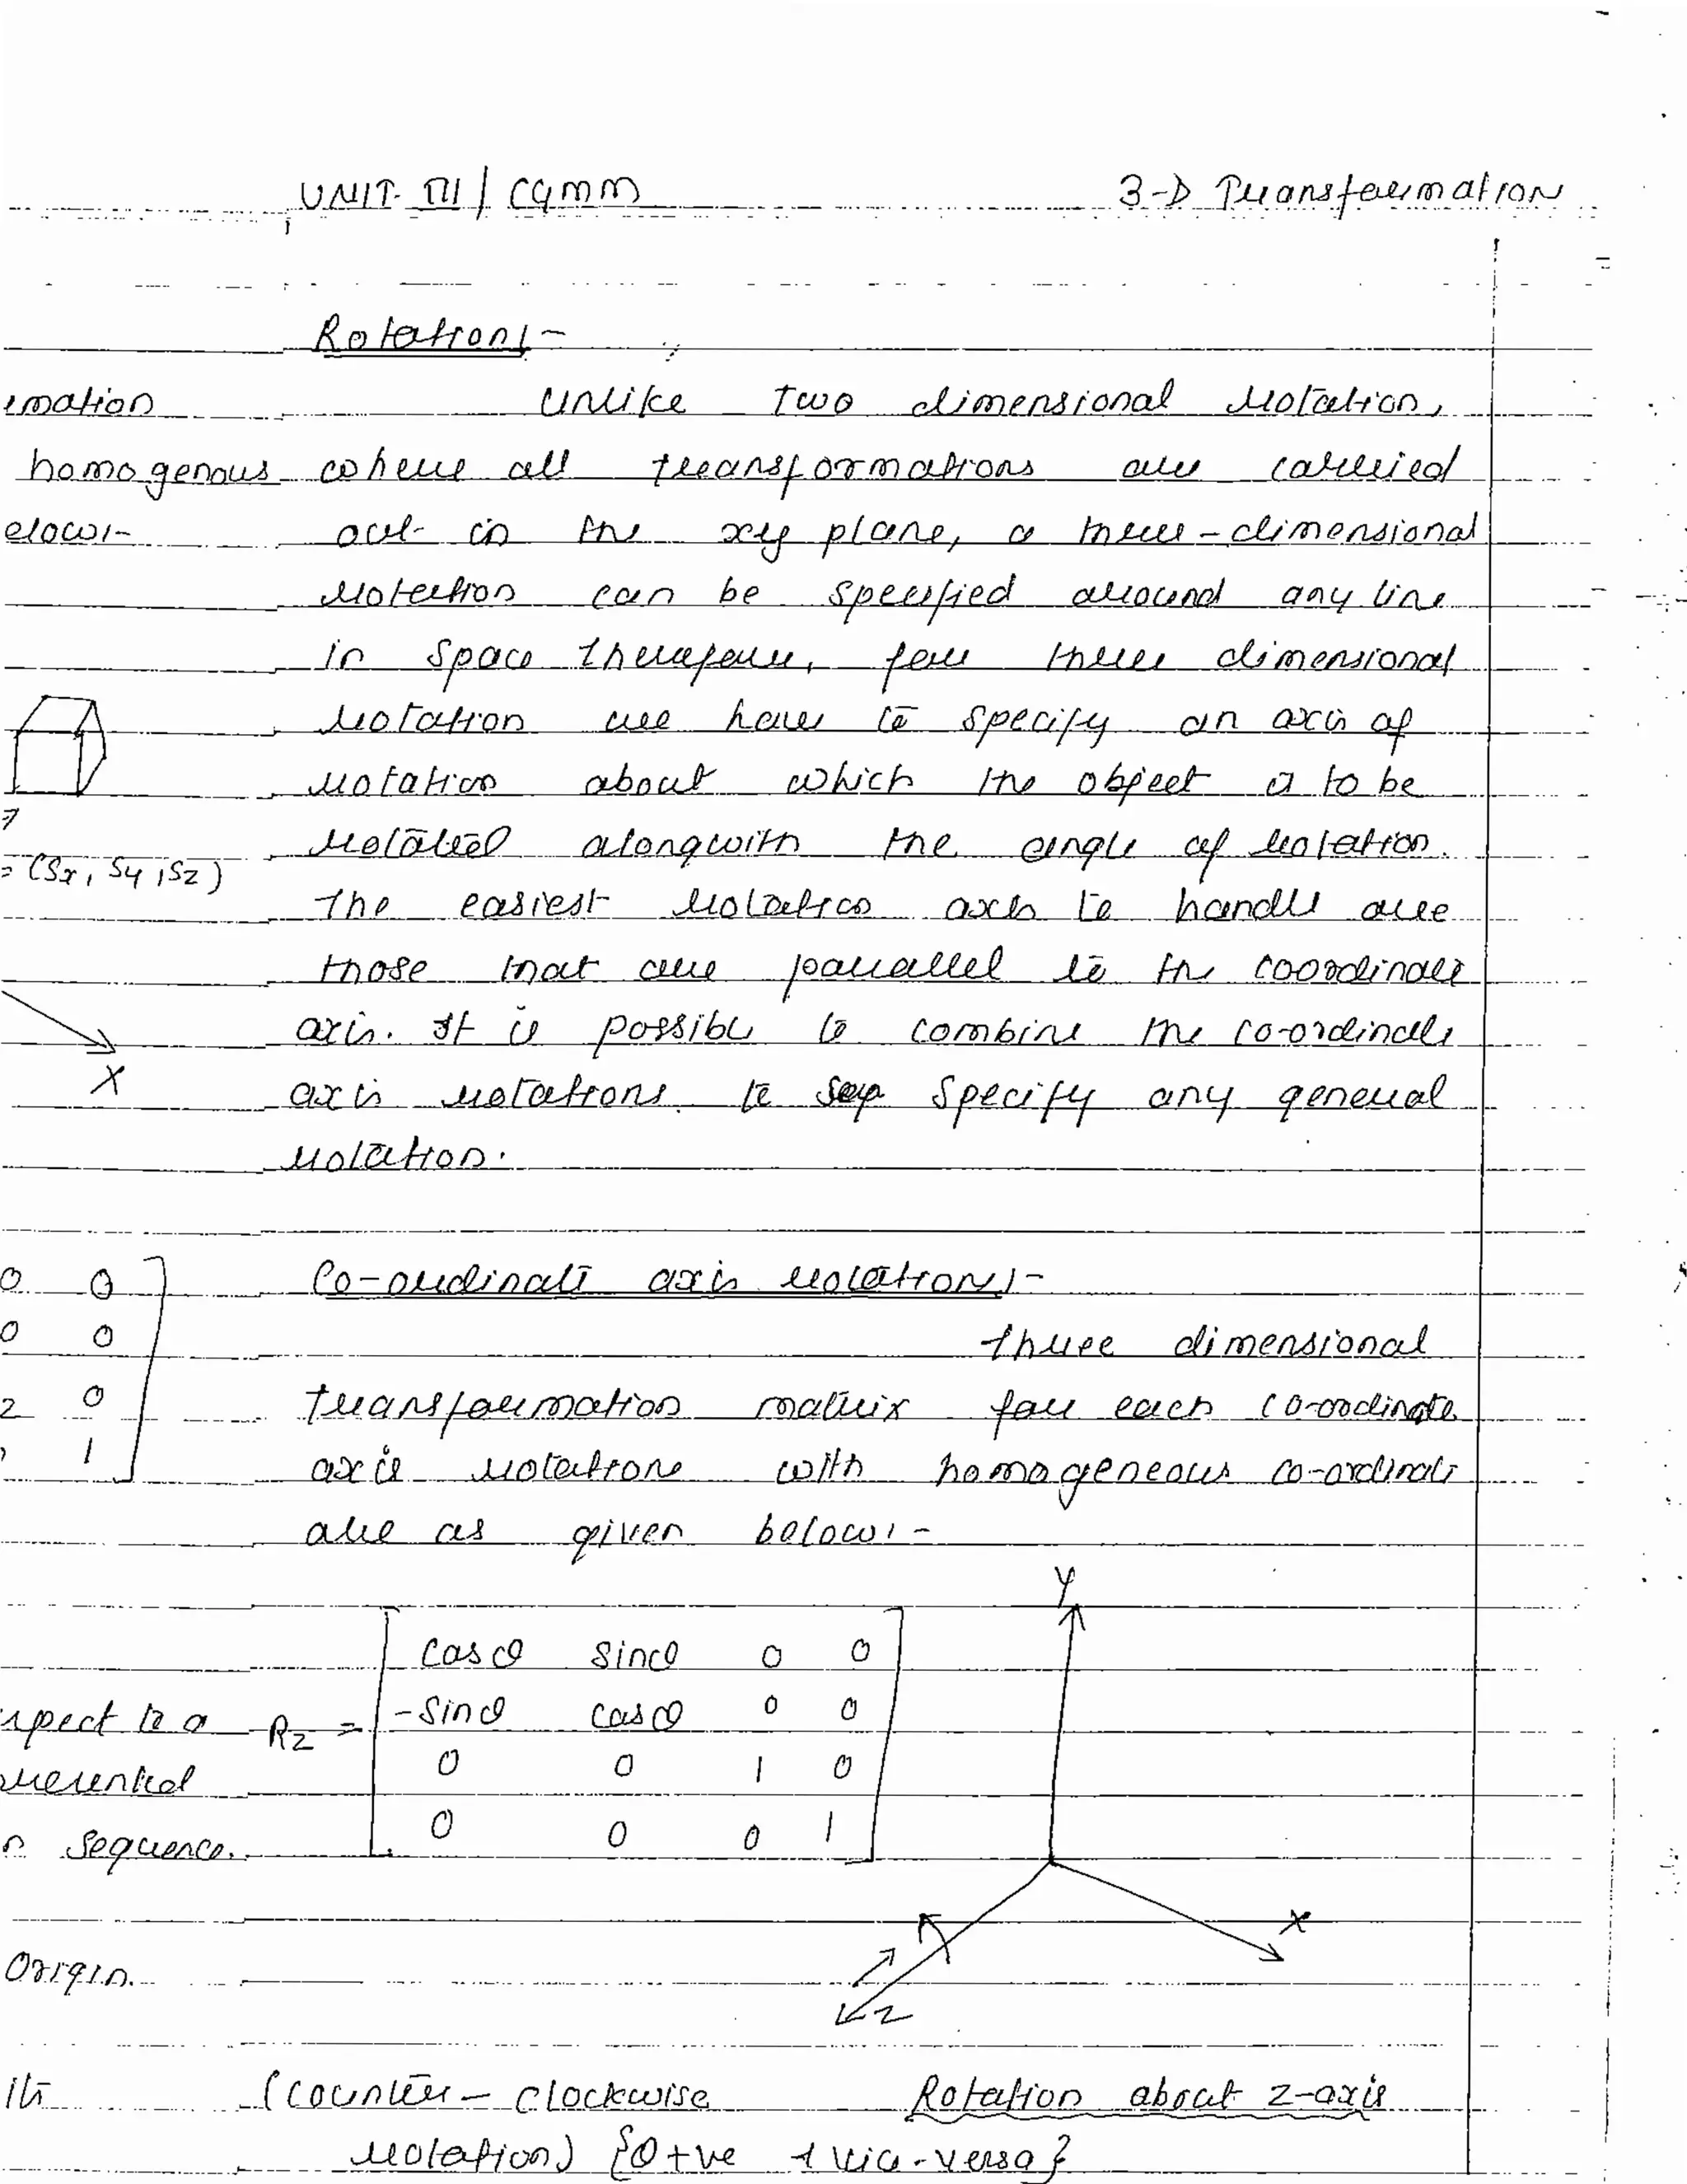 UNIT-III / CGMM 3-D Transformation
Rotation:-
mation Unlike Two dimensional rotation,
homogenous where all transformations are carried
elow:- out in the xy plane, a three-dimensional
rotation can be specified around any line
in space therefore, for three dimensional
rotation we have to specify an axis of
rotation about which the object is to be
rotated alongwith the angle of rotation.
= (Sx, Sy, Sz)
The easiest rotation axis to handle are
those that are parallel to the coordinate
axis. It is possible to combine the co-ordinate
X
axis rotations to Specify any general
rotation.
0 0 Co-ordinate axis rotation:-
0 0 three dimensional
z 0 transformation matrix for each co-ordinate
1 axis rotations with homogeneous co-ordinate
are as given below:-
Y
cosθ sinθ 0 0
spect to a Rz = -sinθ cosθ 0 0
0 0 1 0
n sequence. 0 0 0 1
X
Origin.
Z
its (counter-clockwise Rotation about z-axis
rotation) {θ +ve & vice-versa}